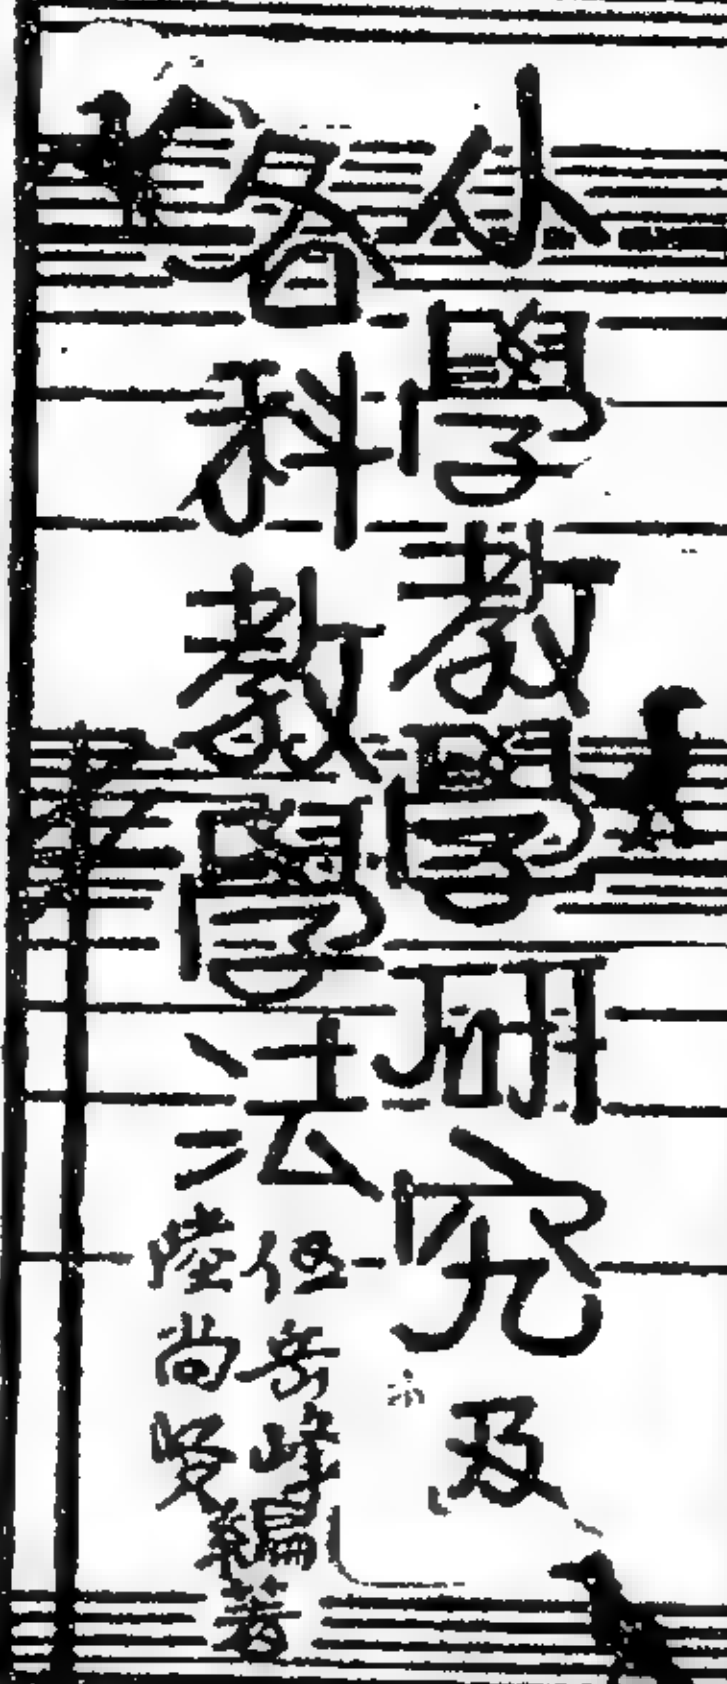 小學教學研究及
各科教學法
伍岳峰
陸尚賢
編著